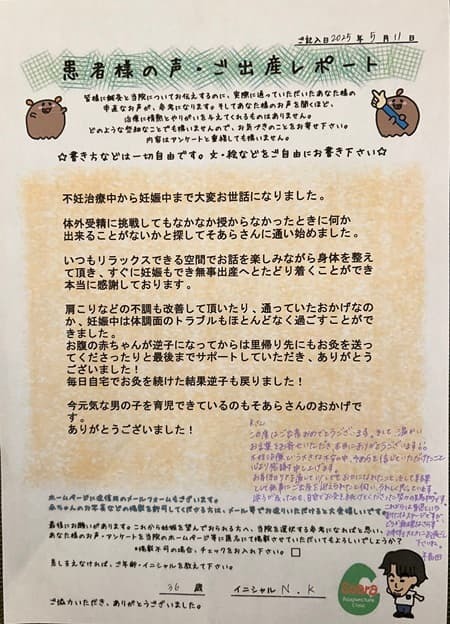 ご記入日2025年5月11日
患者様の声・ご出産レポート
皆様に鍼灸と当院についてお伝えするのに、実際に通っていただいたあなた様の
率直なお声が、参考になります。そしてあなた様のお声を聞くほど、
治療に情熱とやりがいを与えてくれるものはありません。
どのような些細なことでも構いませんので、お気づきのことをお寄せ下さい。
内容はアンケートと重複しても構いません。
☆書き方などは一切自由です。文・絵などをご自由にお書き下さい☆
不妊治療中から妊娠中まで大変お世話になりました。
体外受精に挑戦してもなかなか授からなかったときに何か
出来ることがないかと探してそあらさんに通い始めました。
いつもリラックスできる空間でお話を楽しみながら身体を整え
て頂き、すぐに妊娠もでき無事出産へとたどり着くことができ
本当に感謝しております。
肩こりなどの不調も改善して頂いたり、通っていたおかげなの
か、妊娠中は体調面のトラブルもほとんどなく過ごすことがで
きました。
お腹の赤ちゃんが逆子になってからは里帰り先にもお灸を送っ
てくださったりと最後までサポートしていただき、ありがとう
ございました!
毎日自宅でお灸を続けた結果逆子も戻りました!
今元気な男の子を育児できているのもそあらさんのおかげで
す。
ありがとうございました!
Kさん
この度はご出産おめでとうございます。そして温かい
お言葉をお寄せいただき、本当にありがとうございます。
ホームページに返信用のメールフォームもございます。
赤ちゃんのお写真などの掲載を許可してくださる方は、メール等でお送りいただけると大変嬉しいです。
最後にお願いがあります。これから妊娠を望んでおられる方へ、当院を選択する参考になればと思い、
あなた様のお声・アンケートを当院のホームページ等に匿名にて掲載させていただいてもよろしいでしょうか?
*掲載不可の場合、チェックをお入れ下さい
差し支えなければ、ご年齢・イニシャルを教えて下さい。
36 歳 イニシャル N.K
ご協力いただき、ありがとうございました。
Soara
Acupuncture
Clinic